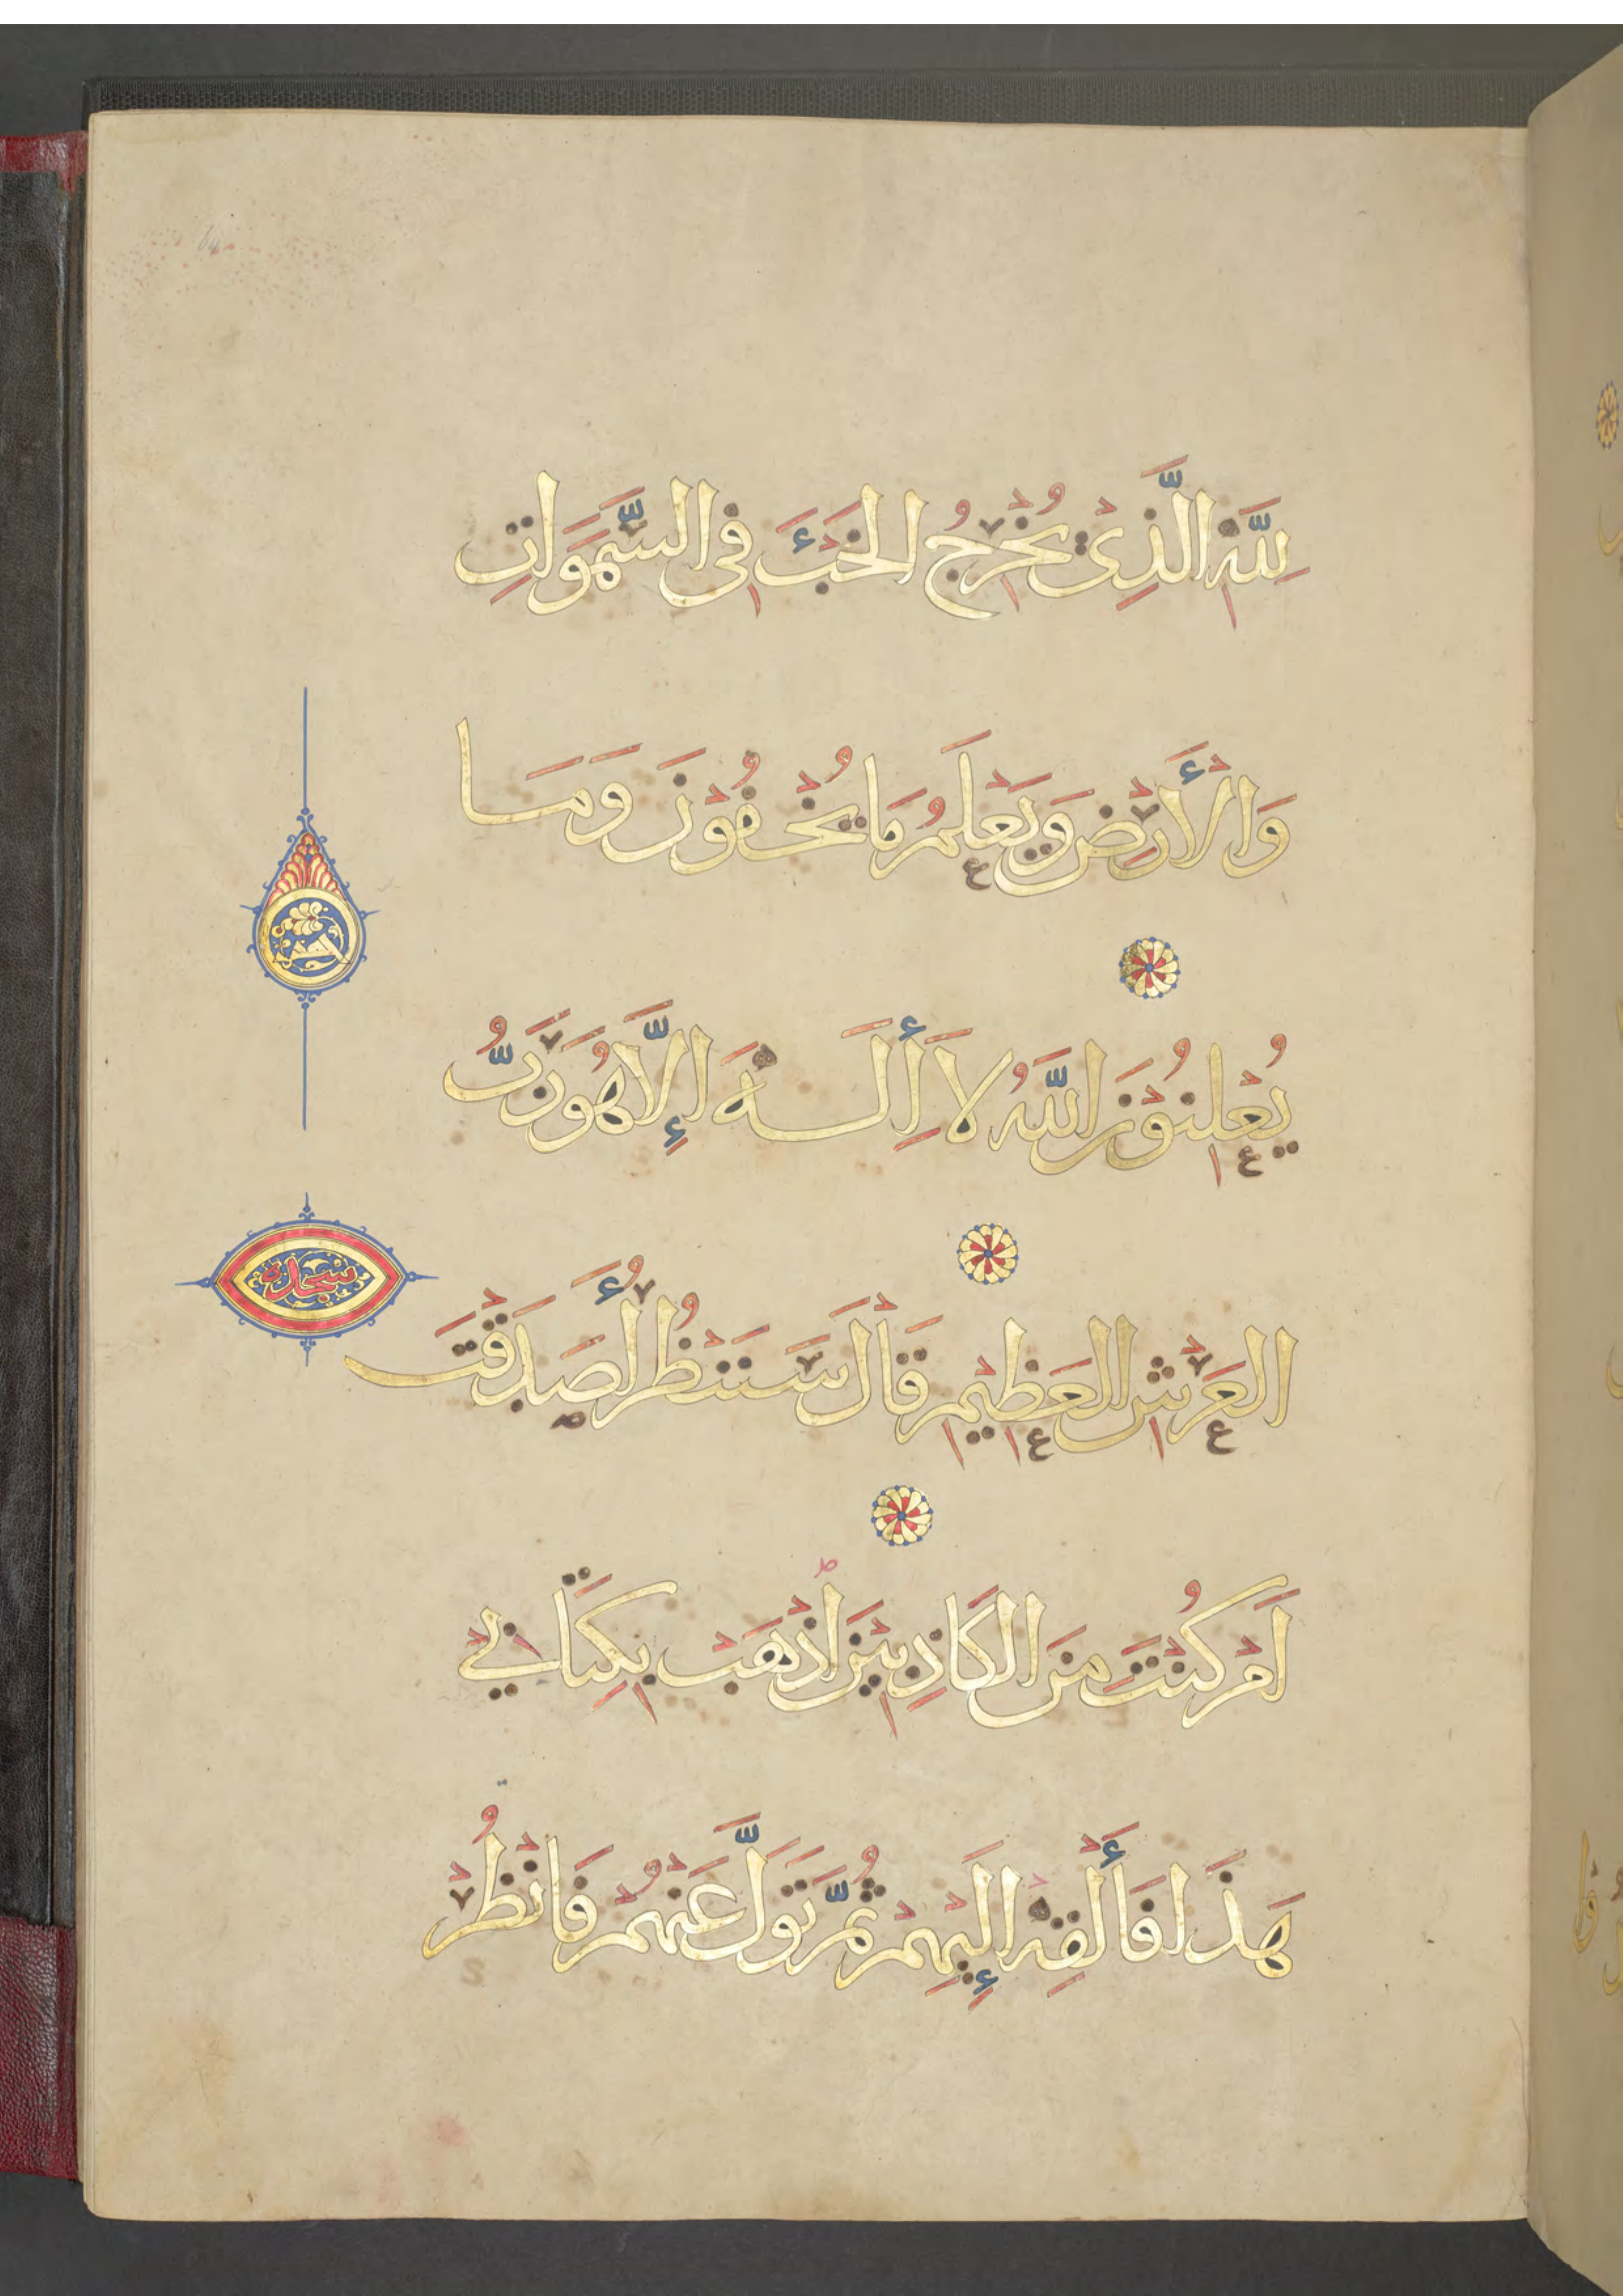 لِلَّهِ الَّذِيْ يُخْرِجُ الخَبْءَ فِي السَّمَوَاتِ
وَالْأَرْضِ وَيَعْلَمُ مَا يُخْفُوْنَ وَمَا
يُعْلِنُوْنَ اللَّهُ لَا أِلَهَ إِلَّا هُوَ رَبُّ
العَرْشِ العَظِيْمِ قَاْلَ سَنَنْظُرُ أَصَدَقْتَ
أَمْ كُنْتَ مِنَ الكَاذِبِيْنَ اذْهَبْ بِكِتَابِيْ
هَذَا فَأَلْقِهْ إِلَيْهِمْ ثُمَّ تَوَلَّ عَنْهُمْ فَانْظُرْ
سجدة